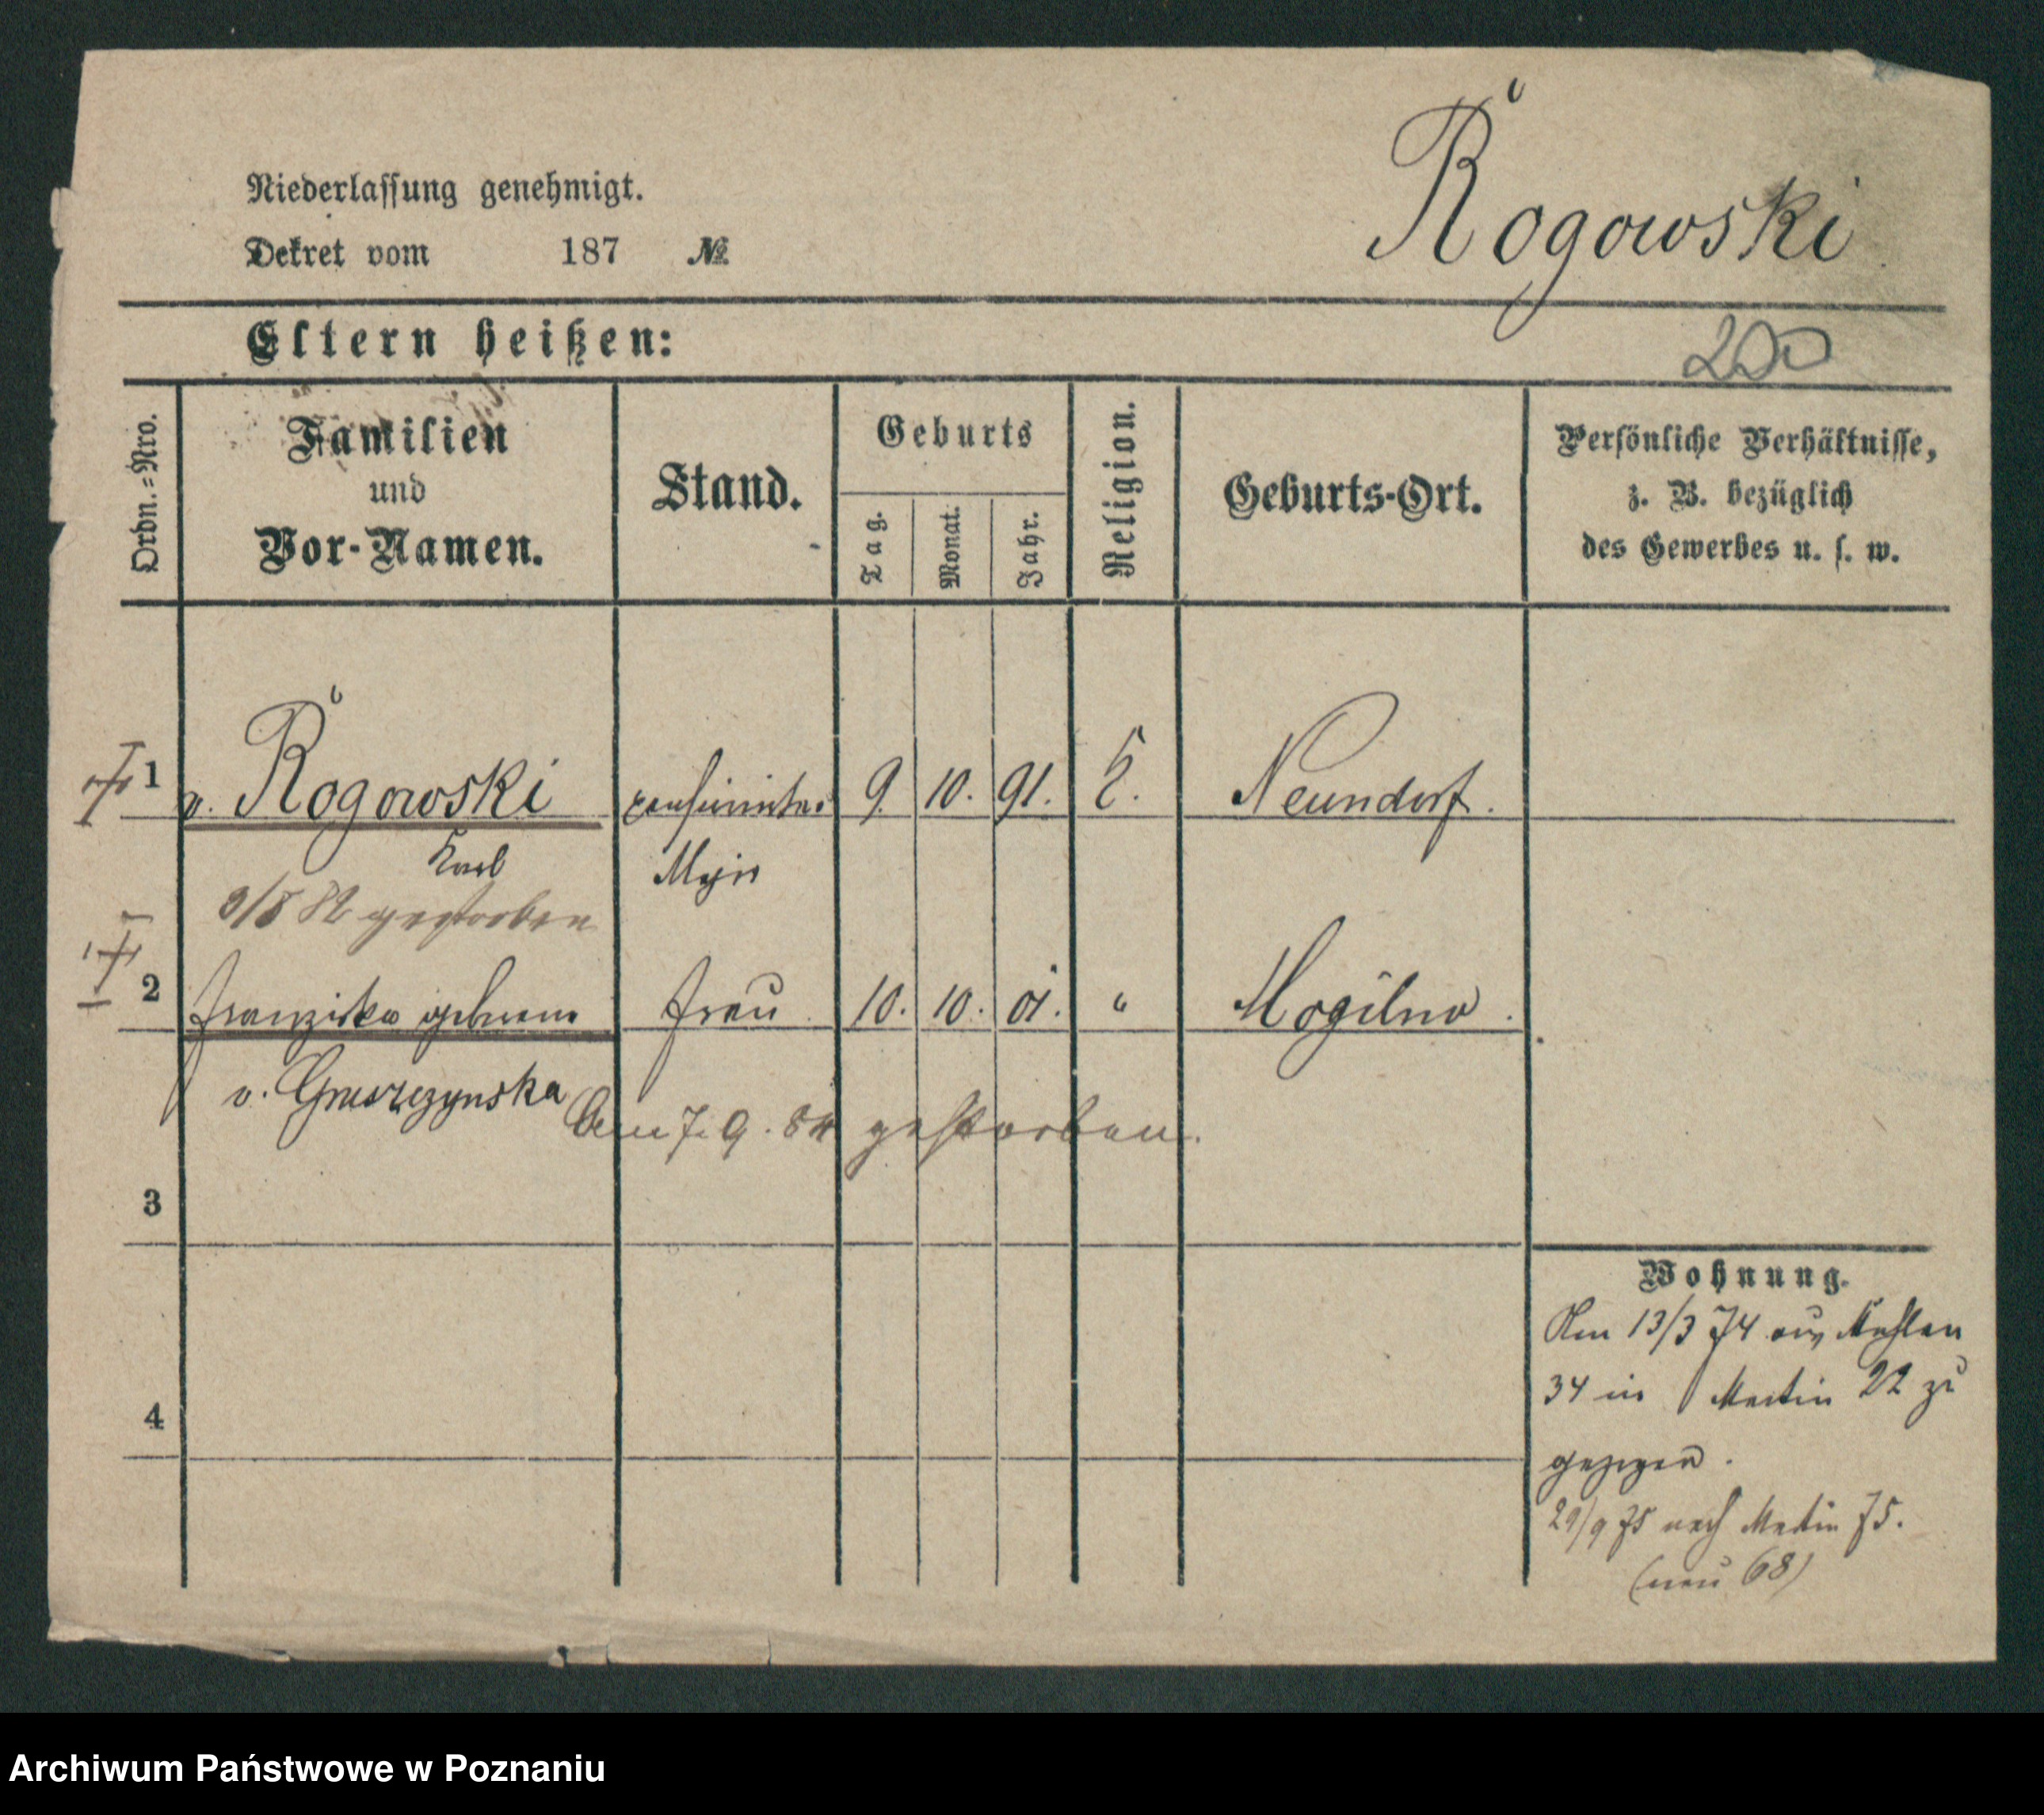 Rogowski
Niederlassung genehmigt.
Dekret vom 187 №
Eltern heißen:
200
Ordn.=Nro.
Familien
und
Vor-Namen.
Stand.
Geburts
Tag.
Monat.
Jahr.
Religion.
Geburts-Ort.
Persönliche Verhältnisse,
z. B. bezüglich
des Gewerbes u. s. w.
1 v. Rogowski pensionirter 9. 10. 91. Neundorf.
Karl Major
3/8 82 gestorben
2 Franziska geborene Frau 10. 10. 01. " Mogilno.
v.
Am 7. 9. 84 gestorben.
3
Wohnung.
Am 13/3 74 aus Mühlen
34 in Martin 22 zu
gezogen.
29/9 75 nach Martin 75.
(neu 68)
4
Archiwum Państwowe w Poznaniu